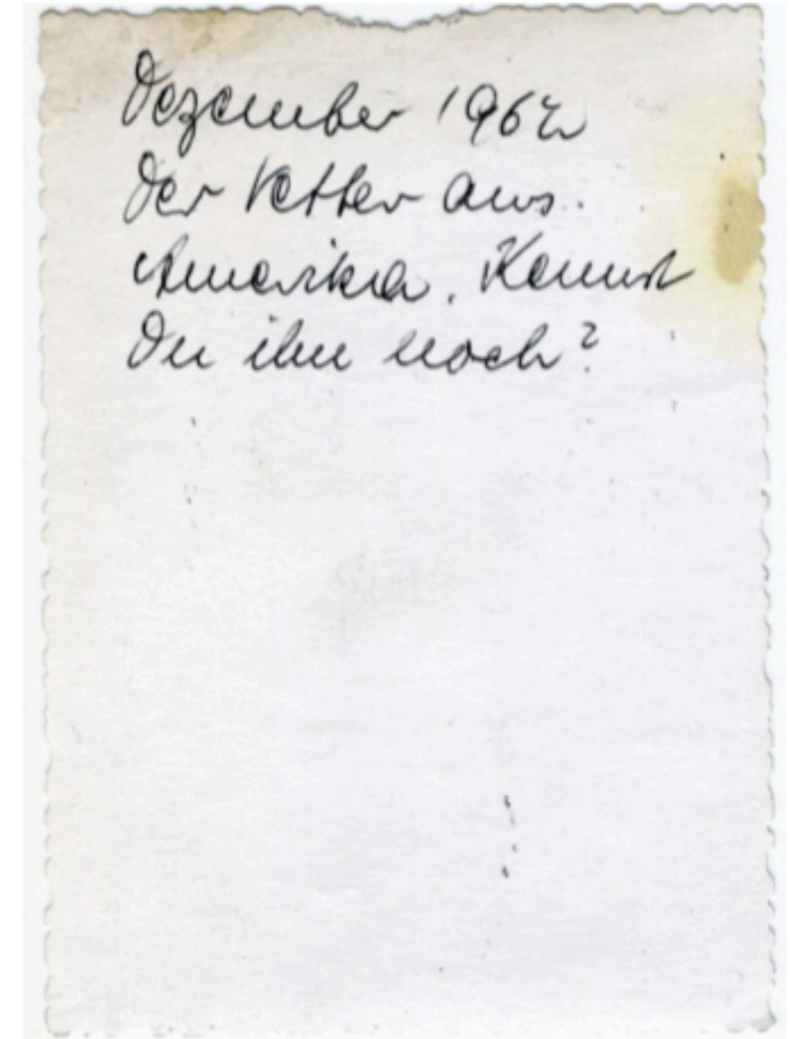 Dezember 1962
Der Vetter aus.
Amerika. Kennst
Du ihn noch?